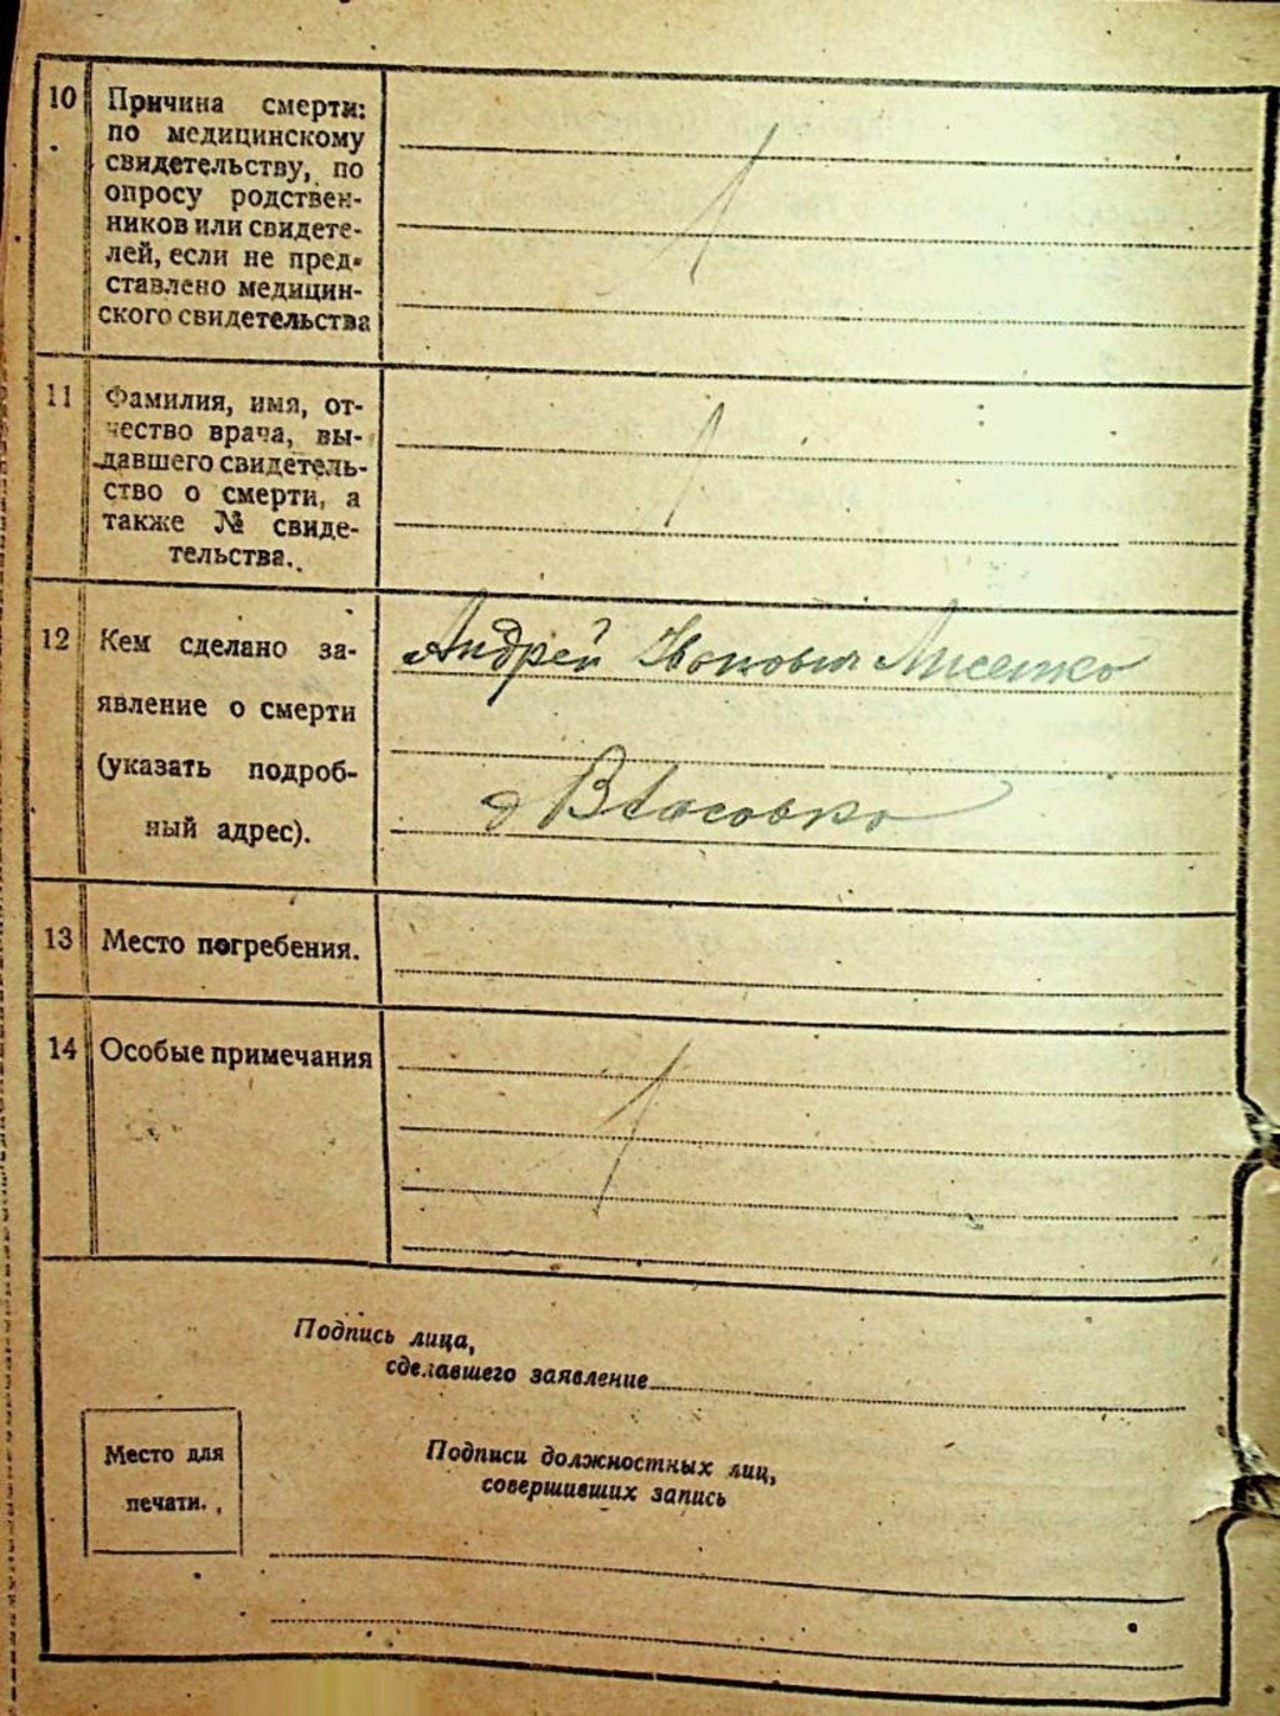 10 Причина смерти:
по медицинскому
свидетельству, по
опросу родствен-
ников или свидете-
лей, если не пред-
ставлено медицин-
ского свидетельства
11 Фамилия, имя, от-
чество врача, вы-
давшего свидетель-
ство о смерти, а
также № свиде-
тельства.
12 Кем сделано за-
явление о смерти
(указать подроб-
ный адрес).
Андрей
Власовка
13 Место погребения.
14 Особые примечания
Подпись лица,
сделавшего заявление
Место для
печати.
Подписи должностных лиц,
совершивших запись